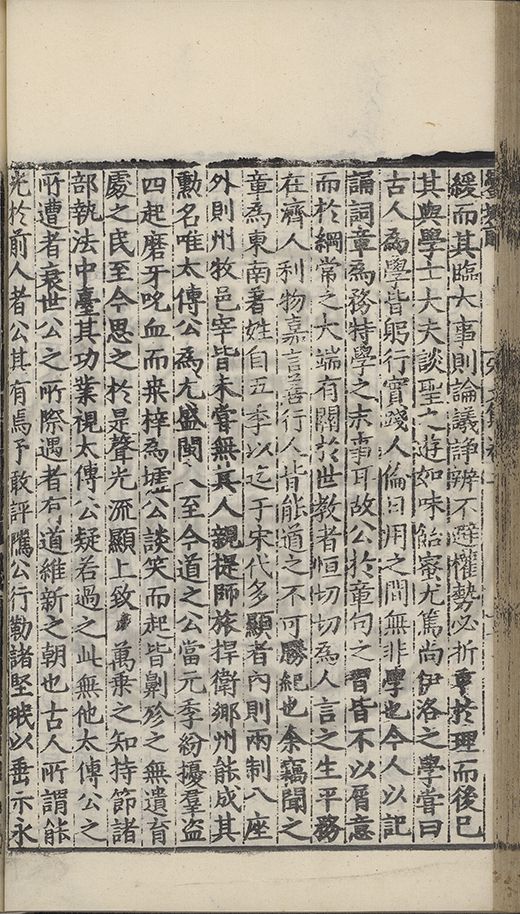 緩而其臨大事則論議諍辨不避權勢必折衷於理而後已
其與學士大夫談聖人之遊如味飴蜜尤篤尚伊洛之學嘗曰
古人為學皆躬行實踐人倫日用之間無非學也今人以記
誦詞章為務特學之末事耳故公於章句之習皆不以屑意
而於綱常之大端有關於世教者恒切切為人言之生平務
在濟人利物嘉言善行人皆能道之不可勝紀也余竊聞之
童為東南著姓自五季以迄于宋代多顯者內則兩制八座
外則州牧邑宰皆未嘗無其人親提師旅捍衛鄉州能成其
勳名唯太傅公為尤盛閩人至今道之公當元季紛擾羣盜
四起磨牙吮血而來梓為墟公談笑而起皆勦殄之無遺育
處之民至今思之於是聲光流顯上致萬乗之知持節諸
部執法中臺其功業視太傅公疑若過之此無他太傅公之
所遭者衰世公之所際遇者有道維新之朝也古人所謂能
光於前人者公其有焉予敢評隲公行勒諸堅珉以垂示永